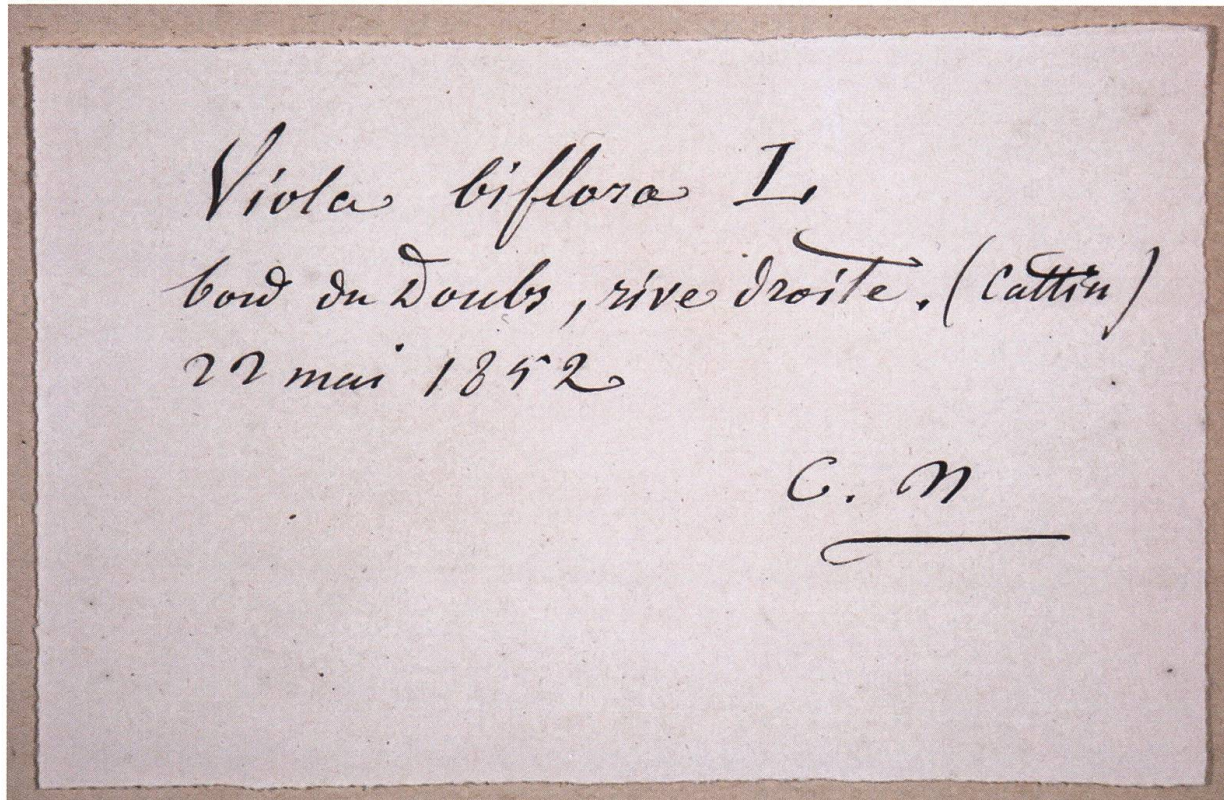 Viola biflora L
bord du Doubs, rive droite. (Cattin)
22 mai 1852
C. N